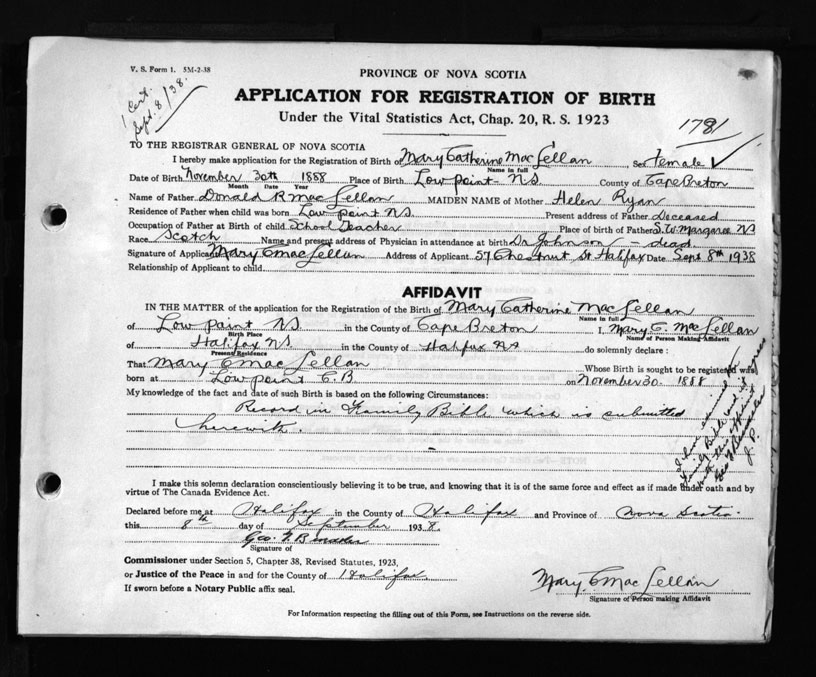 V. S. Form 1. 5M-2-38
1 Cert.
Sept. 8/38.
PROVINCE OF NOVA SCOTIA
APPLICATION FOR REGISTRATION OF BIRTH
Under the Vital Statistics Act, Chap. 20, R. S. 1923
1781
TO THE REGISTRAR GENERAL OF NOVA SCOTIA
I hereby make application for the Registration of Birth of Mary Catherine MacLellan, Sex Female
Name in full
Date of Birth November 30th 1888 Place of Birth Low point - NS County of Cape Breton
Month Date Year
Name of Father Donald R MacLellan MAIDEN NAME of Mother Helen Ryan
Residence of Father when child was born Low point NS. Present address of Father Deceased
Occupation of Father at Birth of child School Teacher Place of birth of Father S.W. Margaree NS
Race Scotch Name and present address of Physician in attendance at birth Dr Johnson - dead
Signature of Applicant Mary C MacLellan Address of Applicant 57 Chestnut St Halifax Date Sept 8th 1938
Relationship of Applicant to child
AFFIDAVIT
IN THE MATTER of the application for the Registration of the Birth of Mary Catherine MacLellan
Name in full
of Low Point NS. in the County of Cape Breton I, Mary C. MacLellan
Birth Place Name of Person Making Affidavit
of Halifax NS in the County of Halifax NS do solemnly declare:
Present Residence
That Mary C MacLellan Whose Birth is sought to be registered was
born at Low point C.B on November 30. 1888
My knowledge of the fact and date of such Birth is based on the following Circumstances:
Record in Family Bible which is submitted
herewith.
I have examined
Family Bible and it agrees
with this affidavit
J. P.
I make this solemn declaration conscientiously believing it to be true, and knowing that it is of the same force and effect as if made under oath and by
virtue of The Canada Evidence Act.
Declared before me at Halifax in the County of Halifax and Province of Nova Scotia
this 8th day of September 1938.
Geo.
Signature of
Commissioner under Section 5, Chapter 38, Revised Statutes, 1923,
or Justice of the Peace in and for the County of Halifax.
If sworn before a Notary Public affix seal.
Mary C MacLellan
Signature of Person making Affidavit
For Information respecting the filling out of this Form, see Instructions on the reverse side.